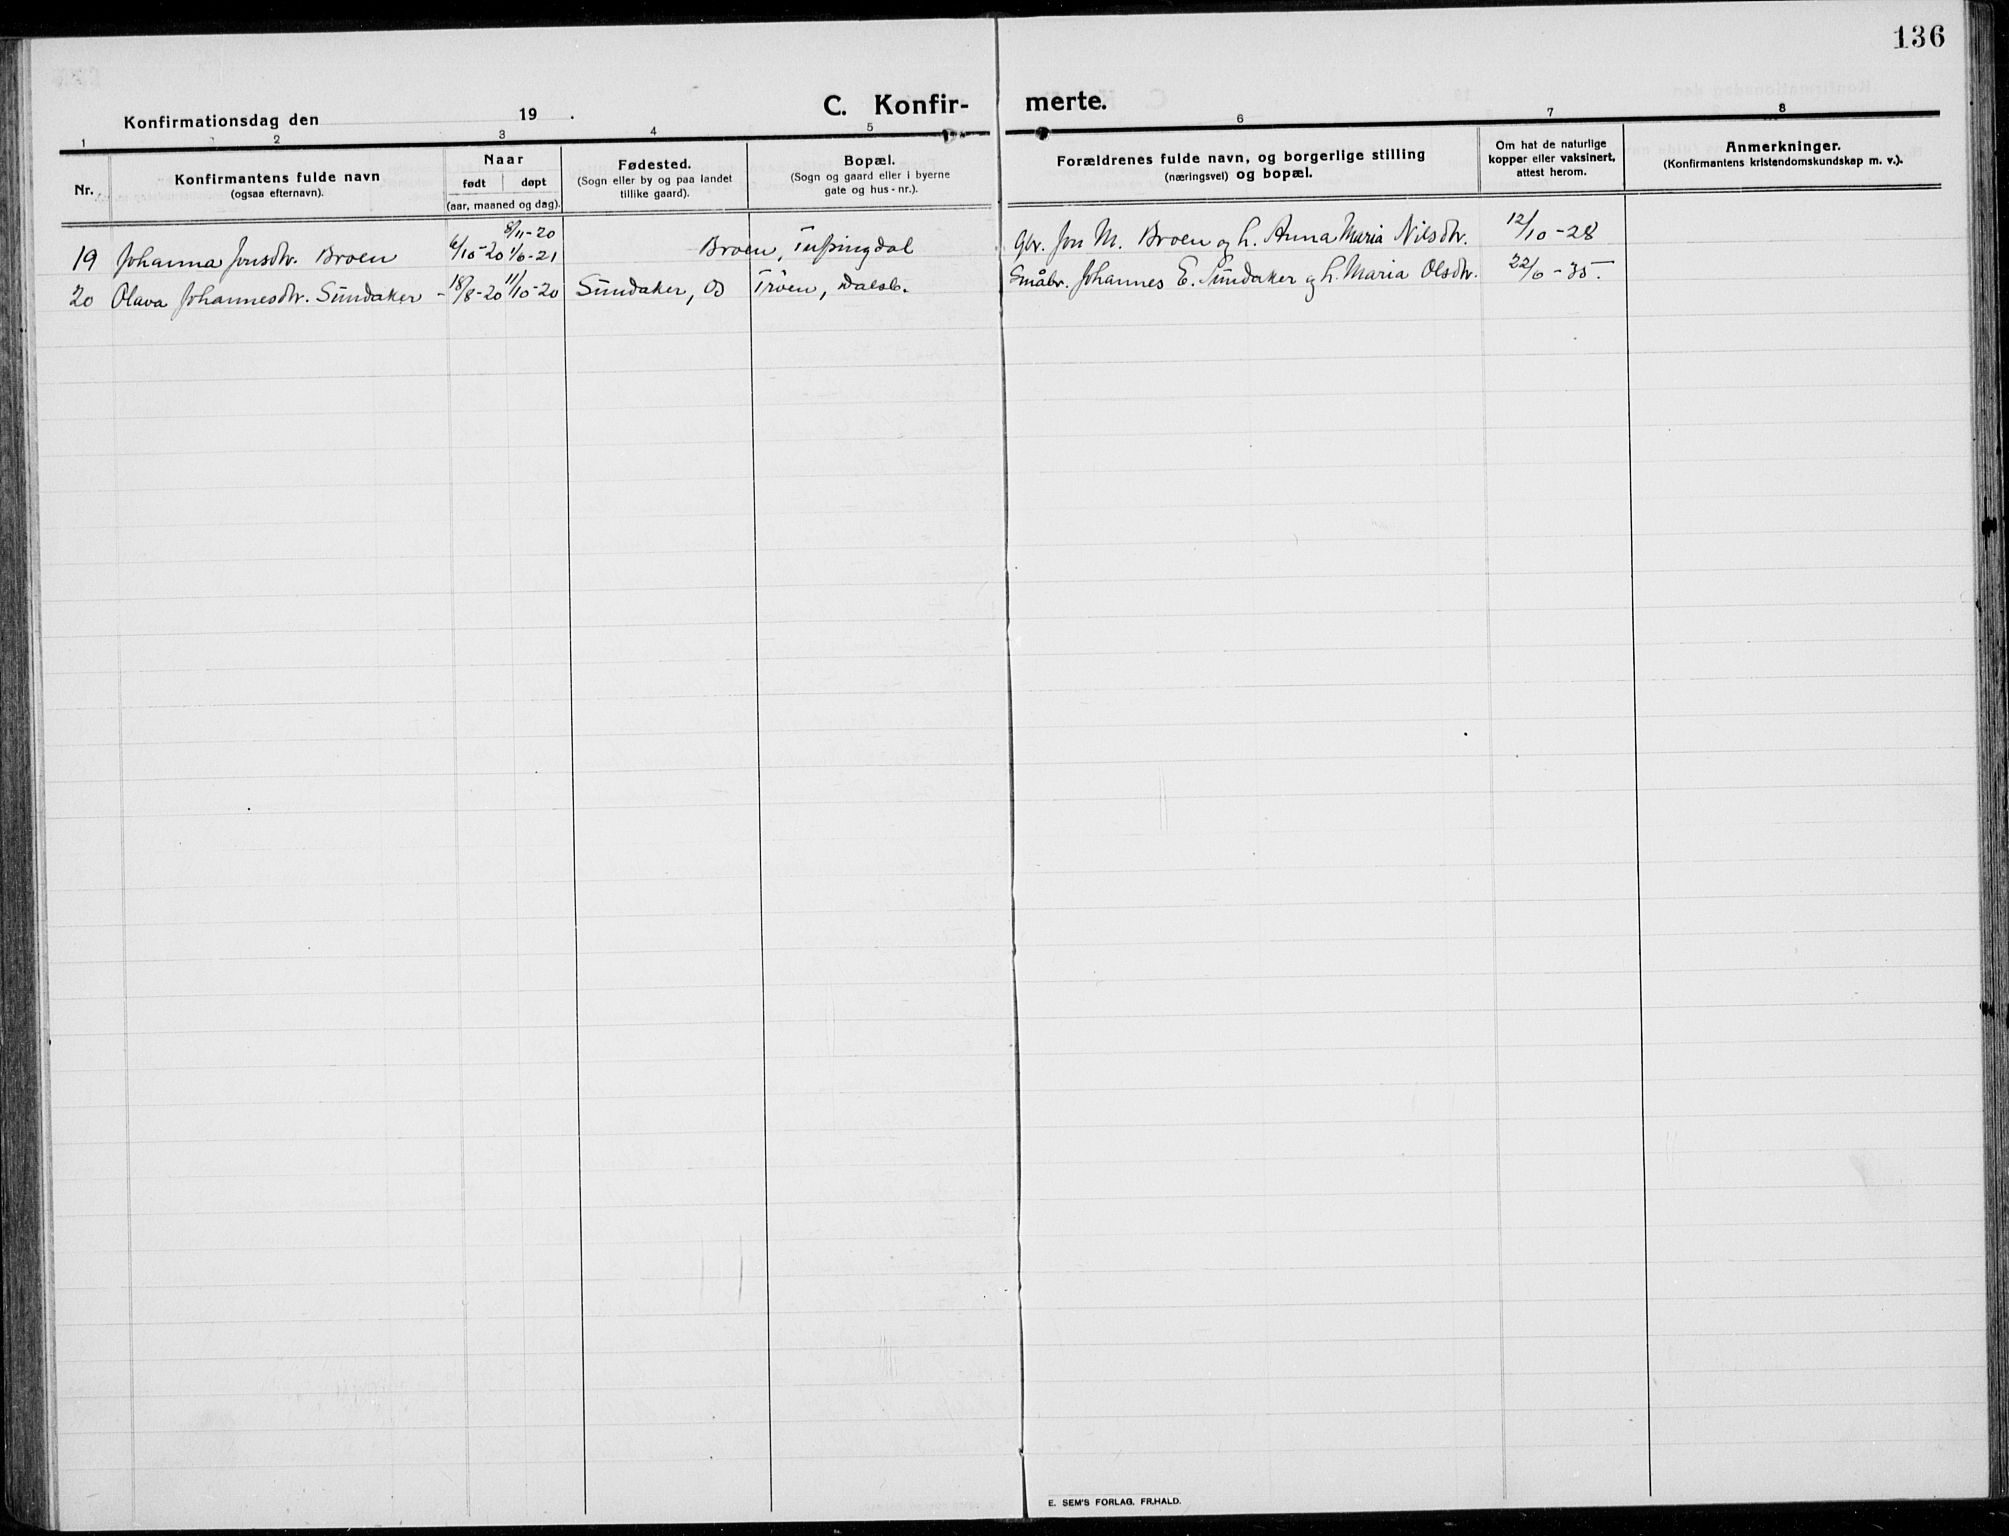 136
C. Konfir- merte.
Konfirmationsdag den 19 .
1 2 3 4 5 6 7 8
Nr.
Konfirmantens fulde navn
(ogsaa efternavn).
Naar
født døpt
(aar, maaned og dag).
Fødested.
(Sogn eller by og paa landet
tillike gaard).
Bopæl.
(Sogn og gaard eller i byerne
gate og hus-nr.).
Forældrenes fulde navn, og borgerlige stilling
(næringsvei) og bopæl.
Om hat de naturlige
kopper eller vaksinert,
attest herom.
Anmerkninger.
(Konfirmantens kristendomskundskap m. v.).
8/11-20
19 Johanna Jonsdtr. Broen 6/10-20 1/6-21 Broen, Tufsingdal Gbr. Jon M. Broen og h. Anna Maria Nilsdtr. 12/10-28
20 Olava Johannesdtr. Sundaker - 18/8-20 11/10-20 Sundaker, Os Trøen, Dalsb. Småbr. Johannes E. Sundaker og h. Maria Olsdtr. 22/6-35.
E. SEM'S FORLAG. FR.HALD.